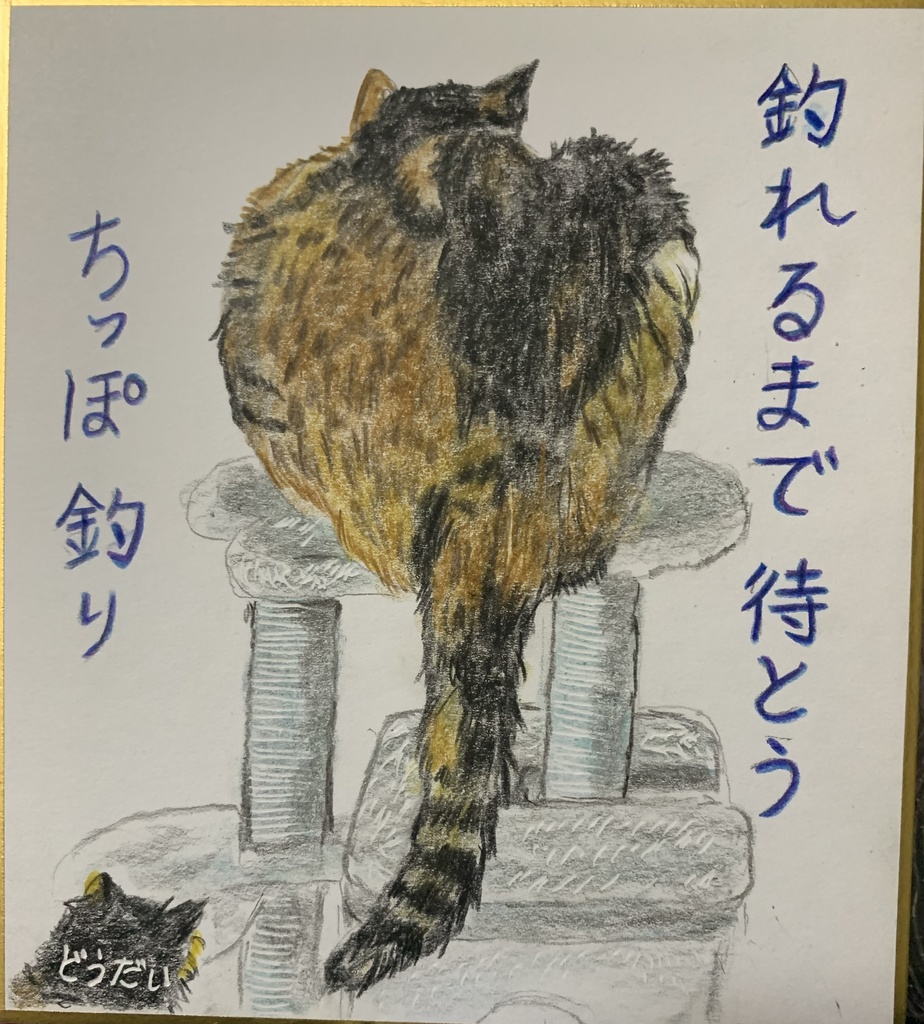 釣れるまで待とう
ちっぽ釣り
どうだい